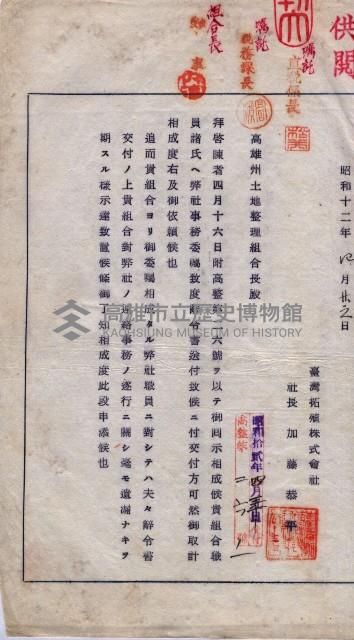 供閲
囑託
直税係長
囑託
税務課長
組合長
昭和十二年 四月 廿三日
臺灣拓殖株式會社
社長 加藤恭平
高雄州土地整理組合長殿
拜啓陳者四月十六日附高整第 六號ヲ以テ御回示相成候貴組合職
員諸氏ヘ弊社事務委囑致度辭令書送付致候ニ付交付方可然御取計
相成度右及御依賴候也
追而貴組合ヨリ御委囑相成タル弊社職員ニ對シテハ夫々辭令書
交付ノ上貴組合對弊社ノ連絡事務ノ遂行ニ關シ毫モ遺漏ナキヲ
期スル樣示達致置候條御了知相成度此段申添候也
昭和拾貳年四月
高整發
高雄市立歷史博物館
KAOHSIUNG MUSEUM OF HISTORY